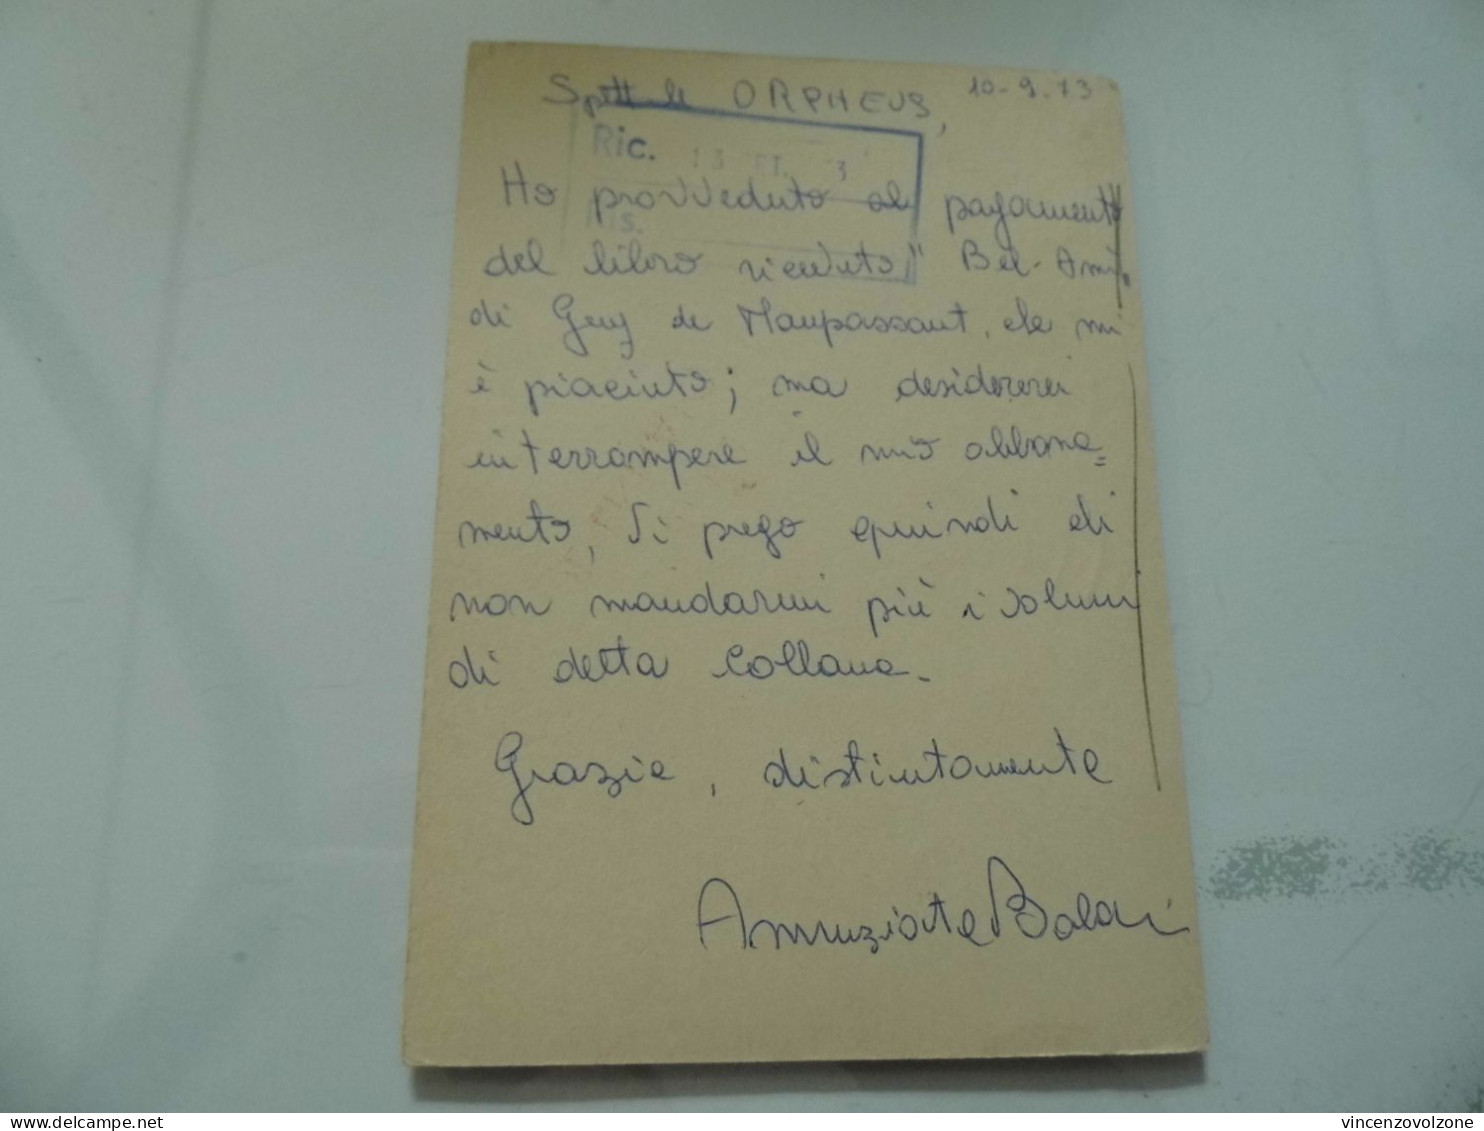 Spett.le ORPHEUS,
10-9-73
Ric. 13 ET. 3
Ris.
Ho provveduto al pagamento
del libro ricevuto "Bel-Ami"
di Guy de Maupassant, che mi
è piaciuto; ma desidererei
interrompere il mio abbona=
mento, Vi prego quindi di
non mandarmi più i volumi
di detta Collana.
Grazie, distintamente
Annunziata
vincenzovolzone